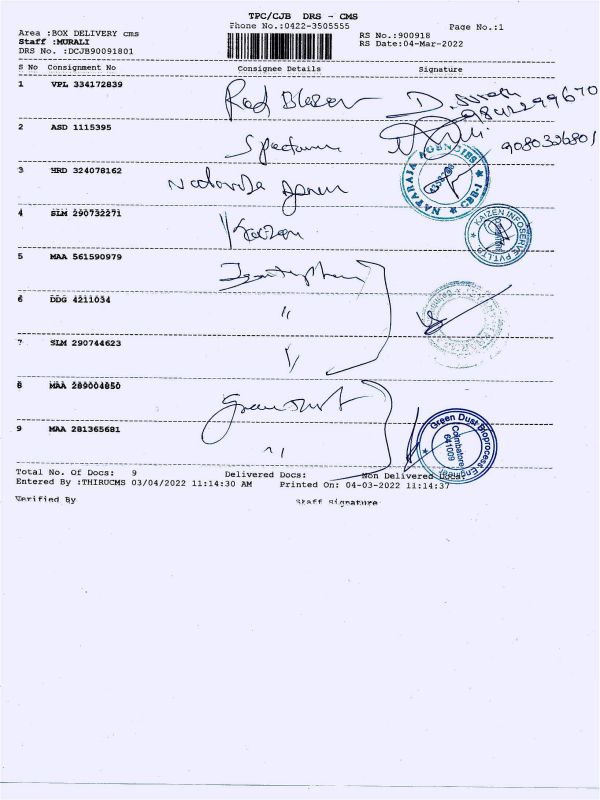 TPC/CJB DRS - CMS
Phone No.:0422-3505555
Page No.:1
Area :BOX DELIVERY cms
Staff :MURALI
DRS No. :DCJB90091801
RS No.:900918
RS Date:04-Mar-2022
S No Consignment No Consignee Details Signature
1 VPL 334172839 Red Blazer
2 ASD 1115395 Spectrum
9080326801
3 HRD 324078162
NATARAJA AGENCIES
CBE-1
4 SLM 290732271 Kaizen
KAIZEN INFOSERVE PVT.LTD.
5 MAA 561590979
6 DDG 4211034 "
7 SLM 290744623
8 MAA 289004850 Green Dust
9 MAA 281365681
Green Dust Bioprocess Engineer
Coimbatore
641009
Total No. of Docs: 9 Delivered Docs: Non Delivered Docs:
Entered By :THIRUCMS 03/04/2022 11:14:30 AM Printed On: 04-03-2022 11:14:37
Verified By Staff Signature